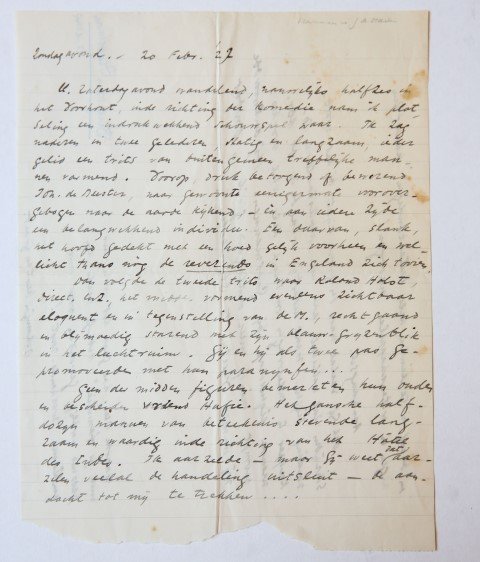 Zondagavond. - 20 Febr. '27
U. Zaterdagavond wandelend, nauwelijks halfzes in
het Voorhout, in de richting der Komedie nam ik plot
seling een indrukwekkend schouwspel waar. Ik zag
naderen in twee gelederen statig en langzaam, ieder
gelid een trits van buitengemeen treffelijke man-
nen vormend. Voorop, druk betoogend of bewerend
Joh. de Meester, naar gewoonte eenigermate voorover-
gebogen naar de aarde kijkend, - en aan iedere zijde
een belangwekkend individu. Een daarvan, slank,
het hoofd gedekt met een hoed gelijk voorheen en wel-
licht thans nog de reverends in Engeland zich
Dan volgde de tweede trits, waar Roland Holst,
direct. enz., het midden vormend eveneens zichtbaar
eloquent en in tegenstelling van de M. rechtgaand
en blijmoedig starend met zijn blauw-grijzen blik
in het luchtruim. Gij en hij als twee pas ge-
promoveerden met hun paranymfen...
Geen der midden figuren bemerkten hun ouden
en bescheiden vriend Hafie. Het gansche half-
dozijn mannen van beteekenis stevende lang-
zaam en waardig in de richting van het Hôtel
des Indes. Ik aarzelde - maar Gij weet dat aar-
zelen veelal de handeling uitsluit - de aan-
dacht tot mij te trekken ....